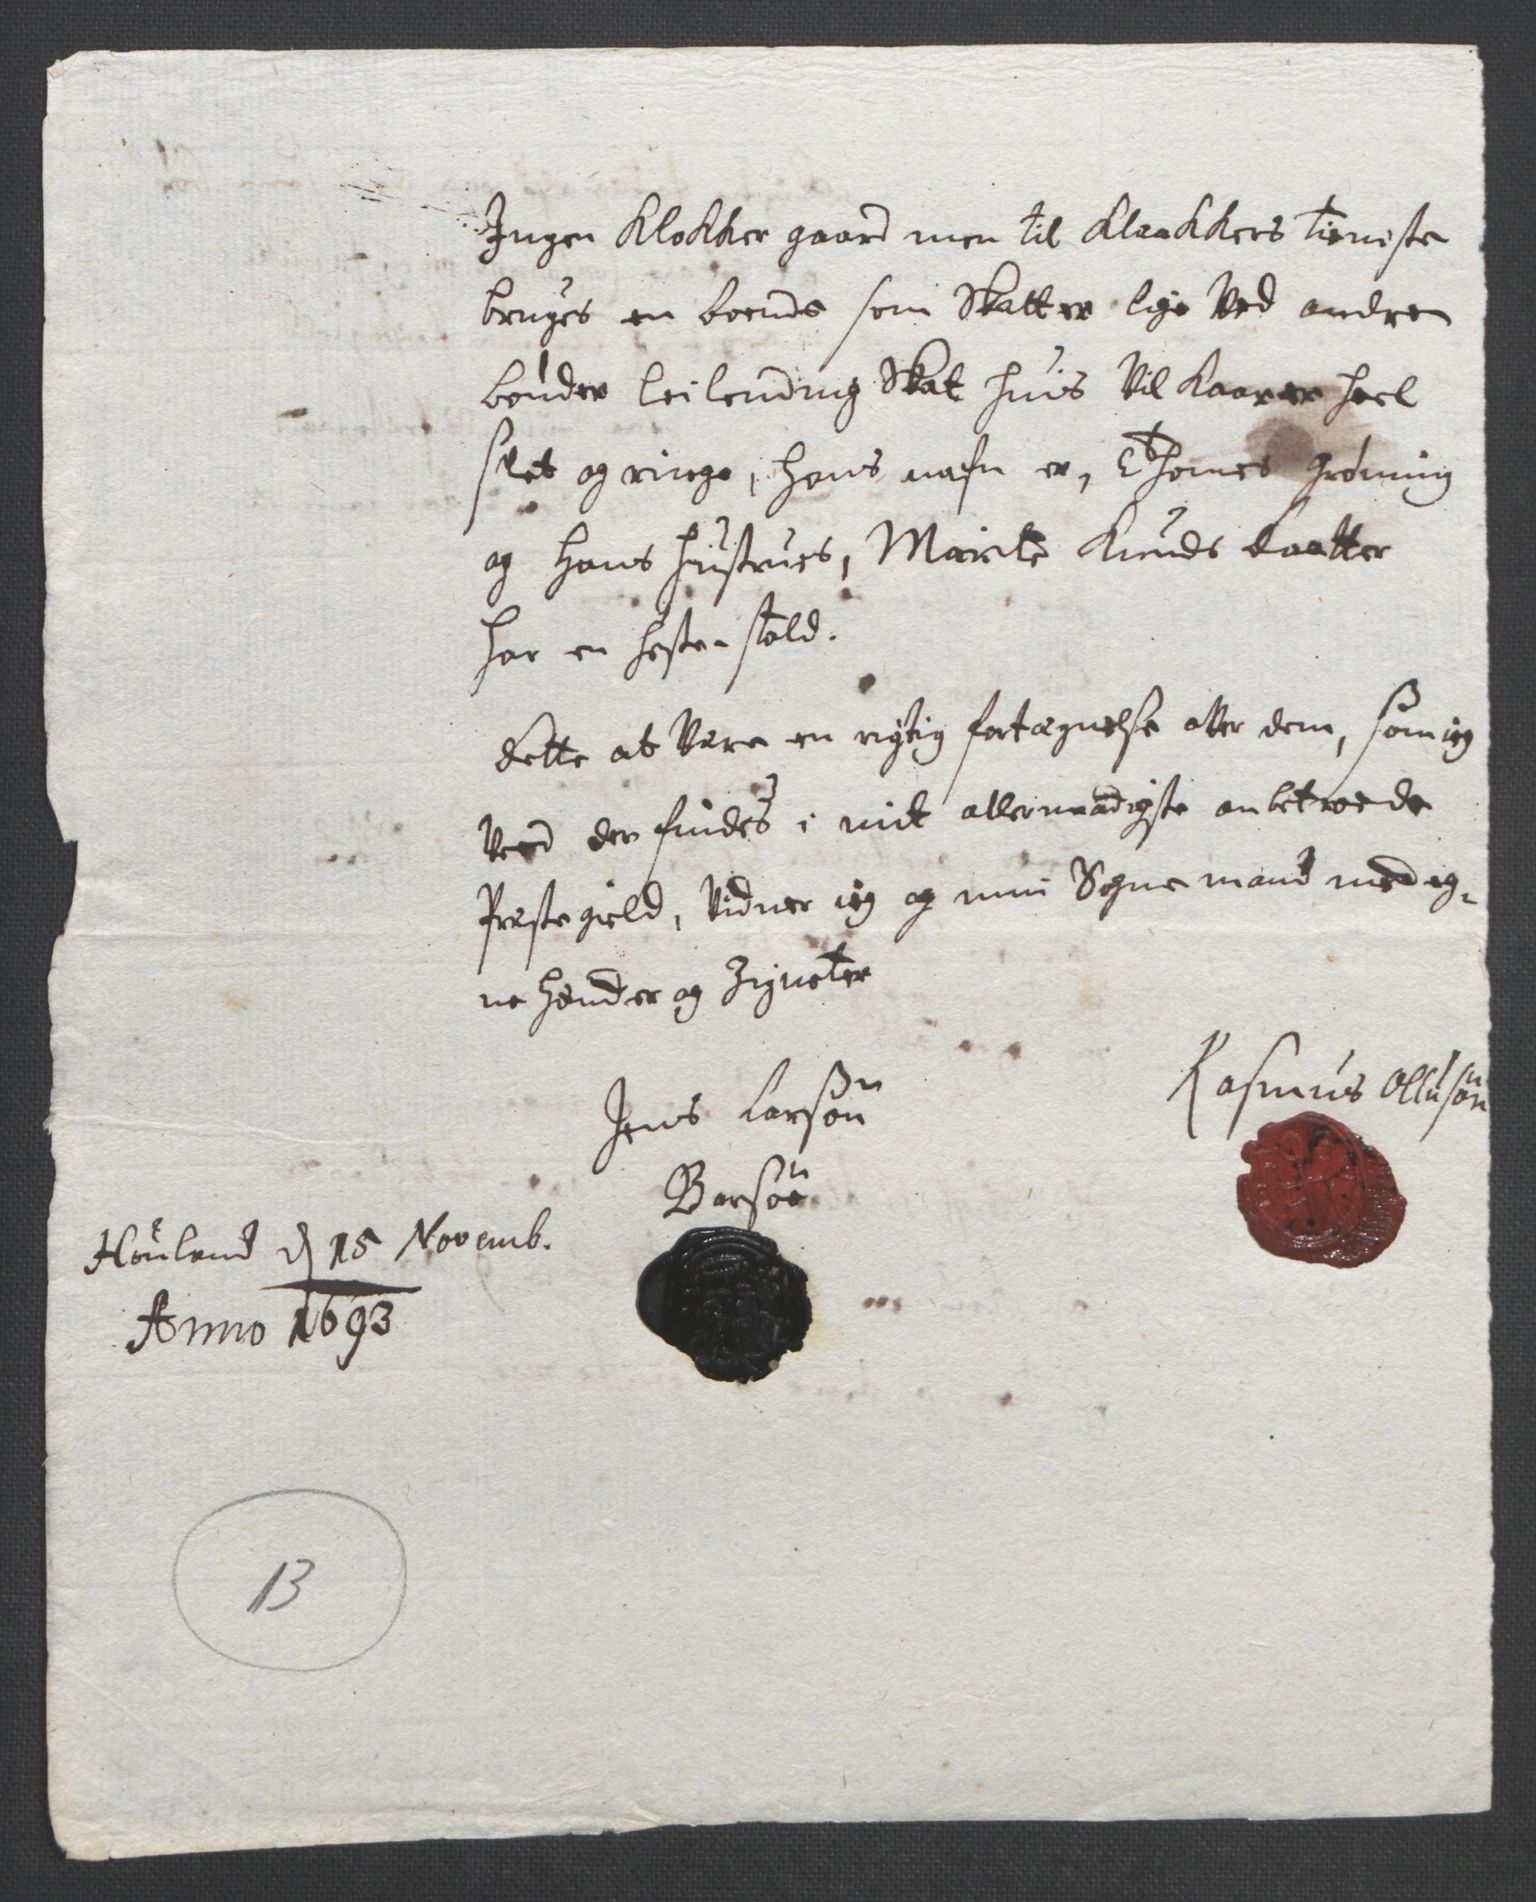 Ingen Klokker gaard men til Klaakkers tieniste
bruges en boende som Skatter lige Ved andre
bønder leilending Skat huis Vilkaar er heel
slet og ringe, hans nafn er, Thomes Grøning
og hans hustrues, Marite Knuds daatter
har en heste stold.
dette at Være en rigtig fortægnelse ofver dem, som ieg
Veed der findes i mit allernaadigste anbetroede
Præstegield, Vidner ieg og min Sogne mand med eg-
ne hænder og Zigneter
Jens Larsøn
Barsøe
Rasmus Olluføn
Høuland d 15 Novemb.
Anno 1693
13